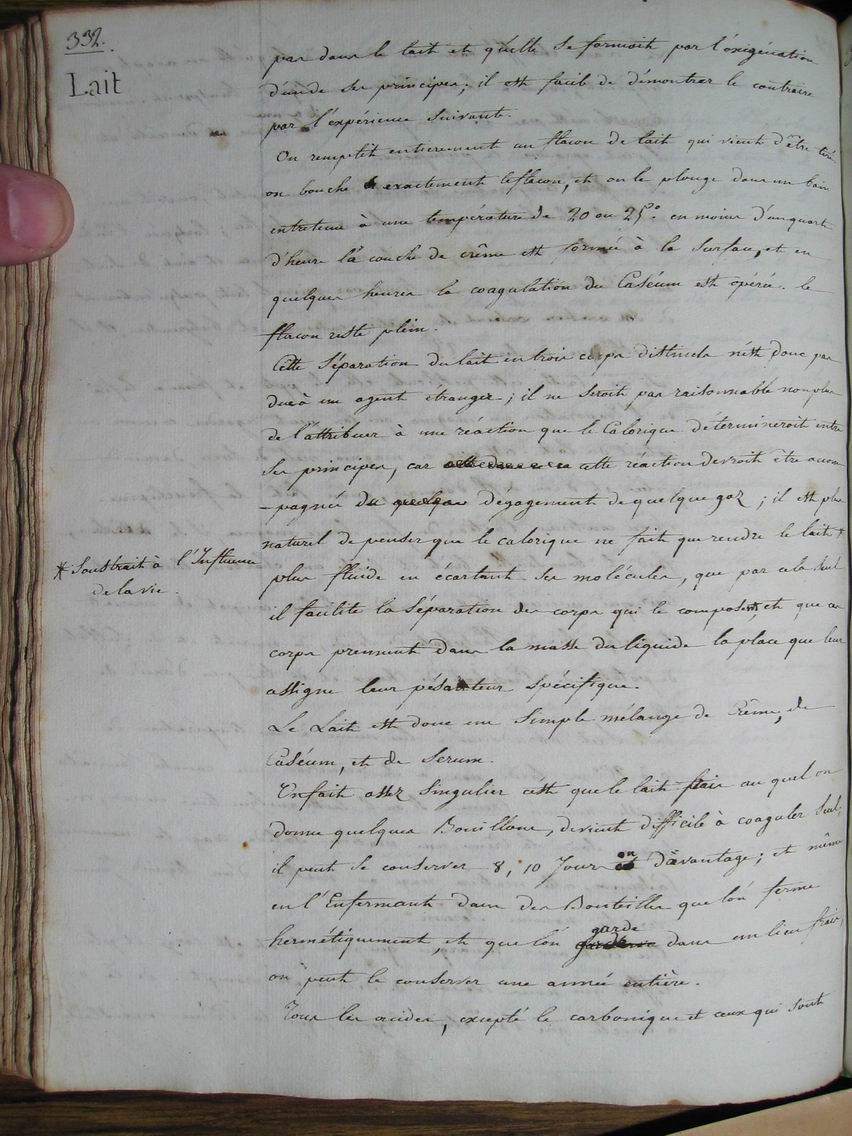 332.
Lait
pas dans le lait et qu'elle se formoit par l'oxigénation
d'un de ses principes: il est facile de démontrer le contraire
par l'expérience suivante.
On remplit entierement un flacon de lait qui vient d'être tiré
on bouche exactement le flacon, et on le plonge dans un bain
entretenu à une température de 20 ou 25°. en moins d'un quart
d'heure la couche de crême est formée à la surface, et en
quelques heures la coagulation du Caséum est opérée. le
flacon reste plein.
Cette séparation du lait en trois corps distincts n'est donc pas
due à un agent étranger; il ne seroit pas raisonnable non plus
de l'attribuer à une réaction que le Calorique détermineroit entre
ses principes, car cette réaction devroit être accom
-pagnée du dégagement de quelque gaz; il est plus
naturel de penser que le calorique ne fait que rendre le lait *
plus fluide en écartant ses molécules, que par cela seul
il facilite la séparation des corps qui le composent, et que ces
corps prennent dans la masse du liquide la place que leur
assigne leur pésanteur spécifique.
* Soustrait à l'Influence
de la vie.
Le Lait est donc un simple mélange de Crême, de
Caséum, et de Serum.
Un fait assez singulier c'est que le lait frais au quel on
donne quelques Bouillons, devient difficile à coaguler seul,
il peut se conserver 8, 10 Jours ou d'avantage; et même
en l'Enfermant dans des Bouteilles que l'on ferme
hermétiquement, et que l'on garde dans un lieu frais,
on peut le conserver une année entière.
Tous les acides, excepté le carbonique et ceux qui sont